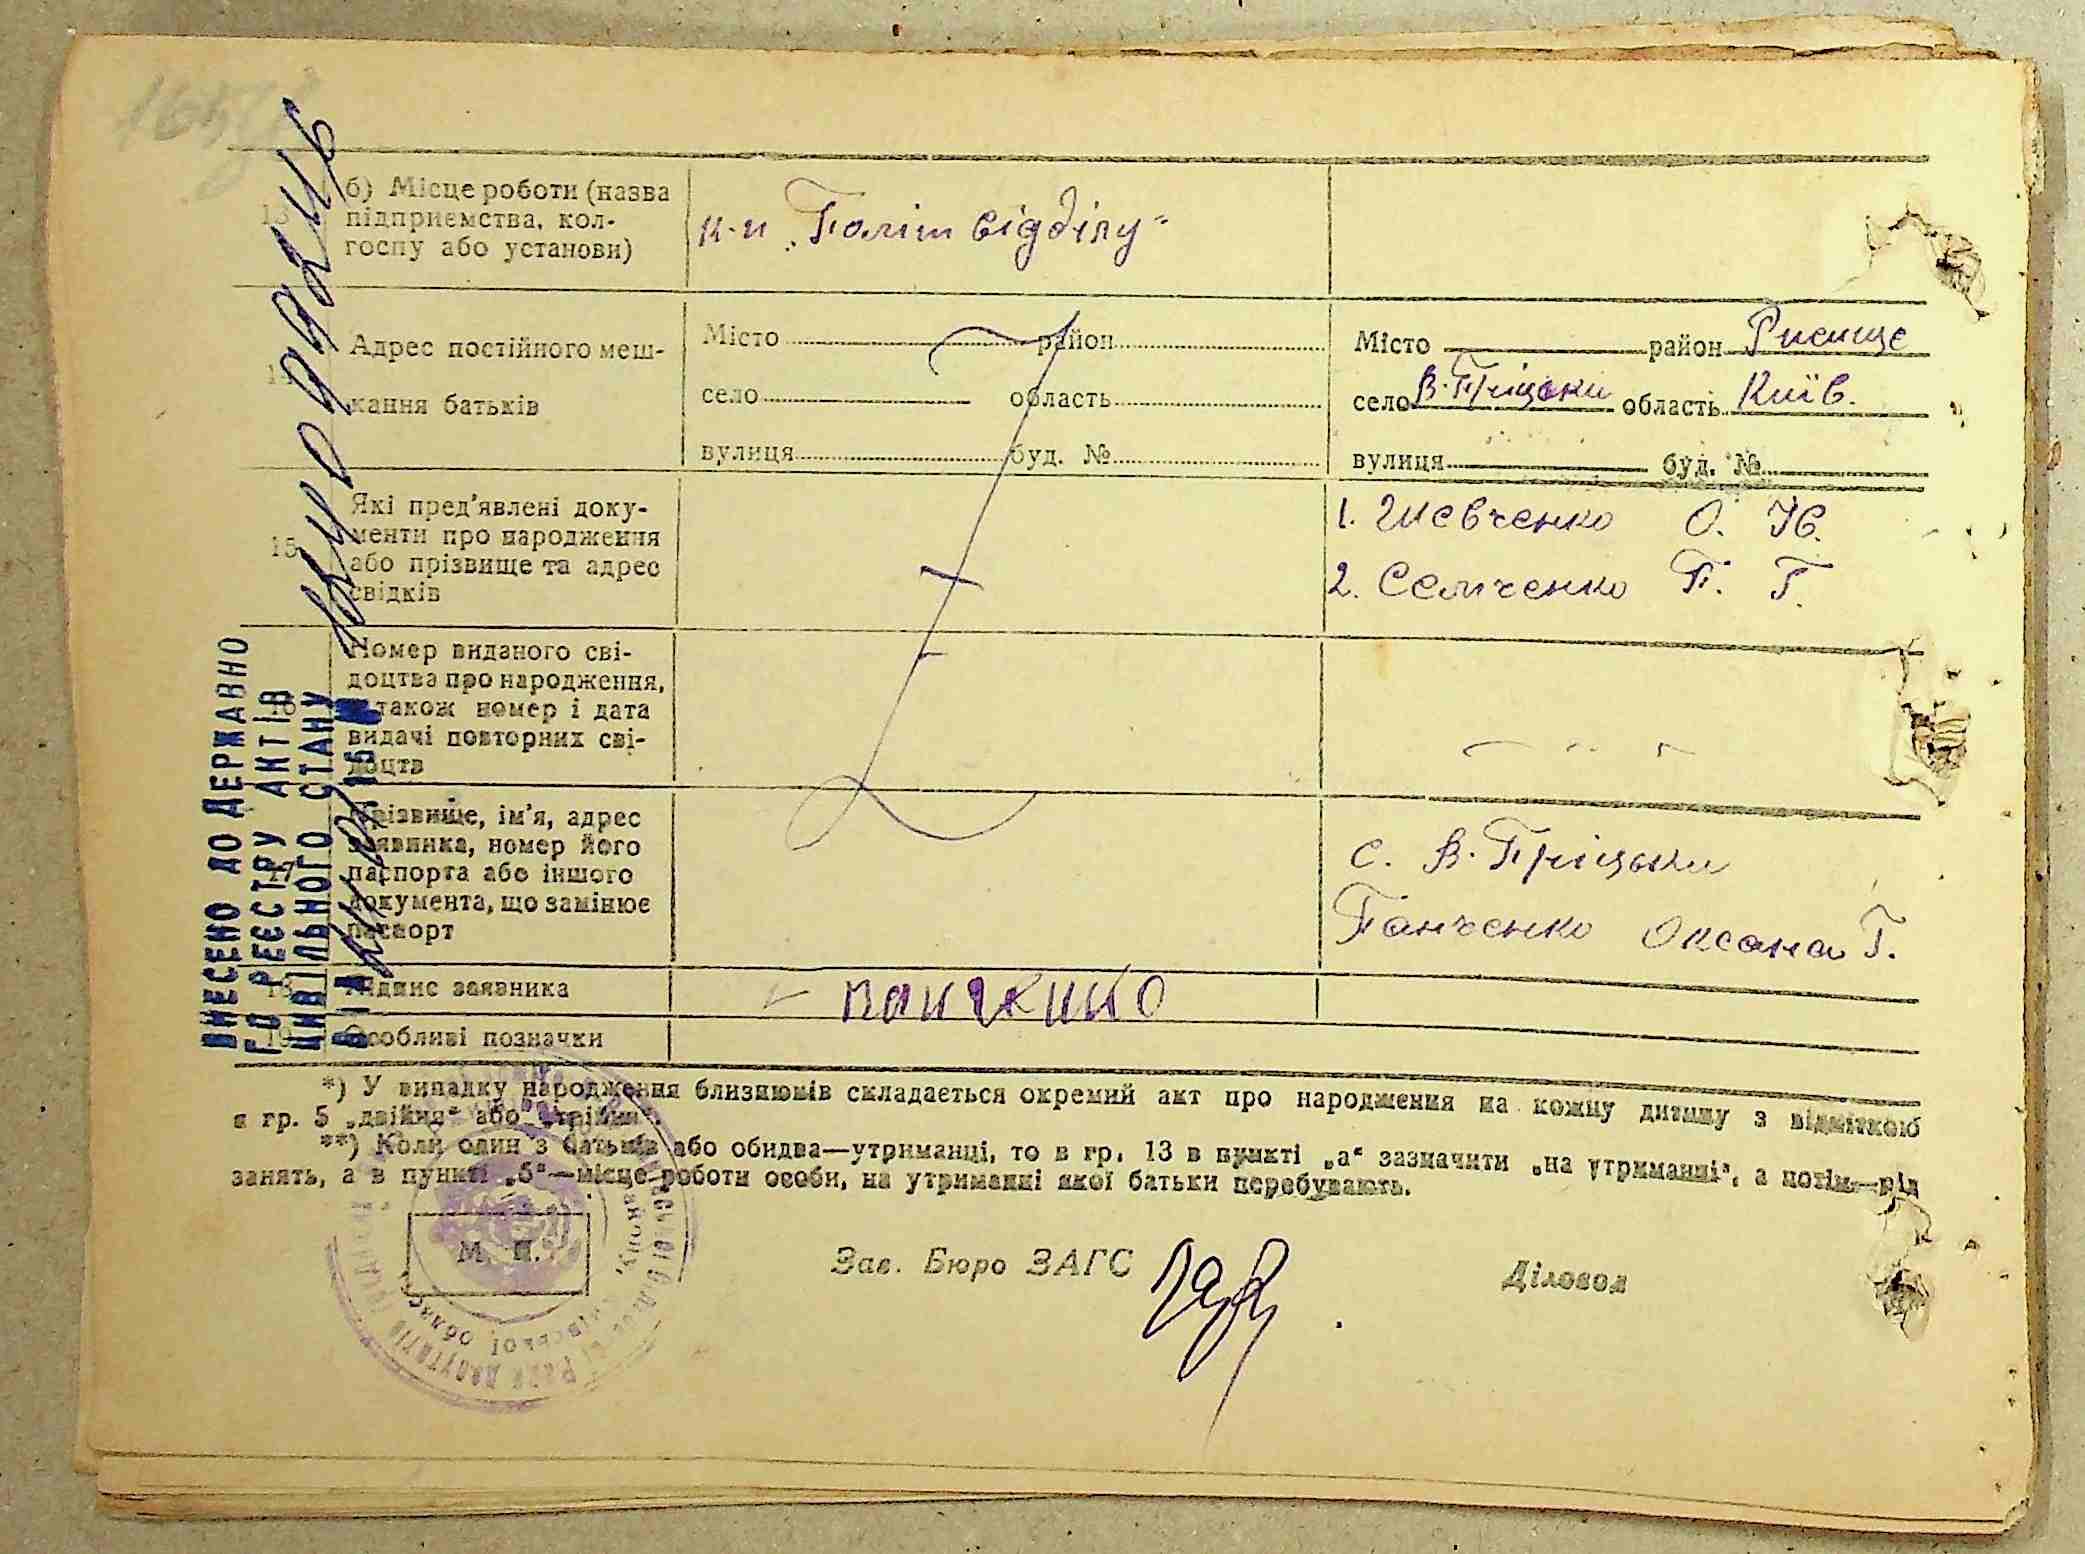 13
б) Місце роботи (назва
підприємства, кол-
госпу або установи)
к-п „Політвідділу“
14
Адрес постійного меш-
кання батьків
Місто район
село область
вулиця буд. №
Місто район Ржищє
село В-Пріцьки область Київ.
вулиця буд. №
15
Які пред'явлені доку-
менти про народження
або прізвище та адрес
свідків
1. Шевченко О. Ю.
2. Семченко П. Г.
16
Номер виданого сві-
доцтва про народження,
а також номер і дата
видачі повторних сві-
доцтв
17
Прізвище, ім'я, адрес
заявника, номер його
паспорта або іншого
документа, що замінює
паспорт
с. В-Пріцьки
Панченко Оксана Г.
18
Підпис заявника
19
Особливі позначки
ВНЕСЕНО ДО ДЕРЖАВНО
ГО РЕЄСТРУ АКТІВ
ЦИВІЛЬНОГО СТАНУ
ВІД
*) У випадку народження близнюків складається окремий акт про народження на кожну дитину з відміткою
в гр. 5 „двійня“ або „трійня“.
**) Коли один з батьків або обидва—утриманці, то в гр. 13 в пункті „а“ зазначити „на утриманні“, а потім—рід
занять, а в пункті „б“—місце роботи особи, на утриманні якої батьки перебувають.
М. П.
Зав. Бюро ЗАГС
Діловод